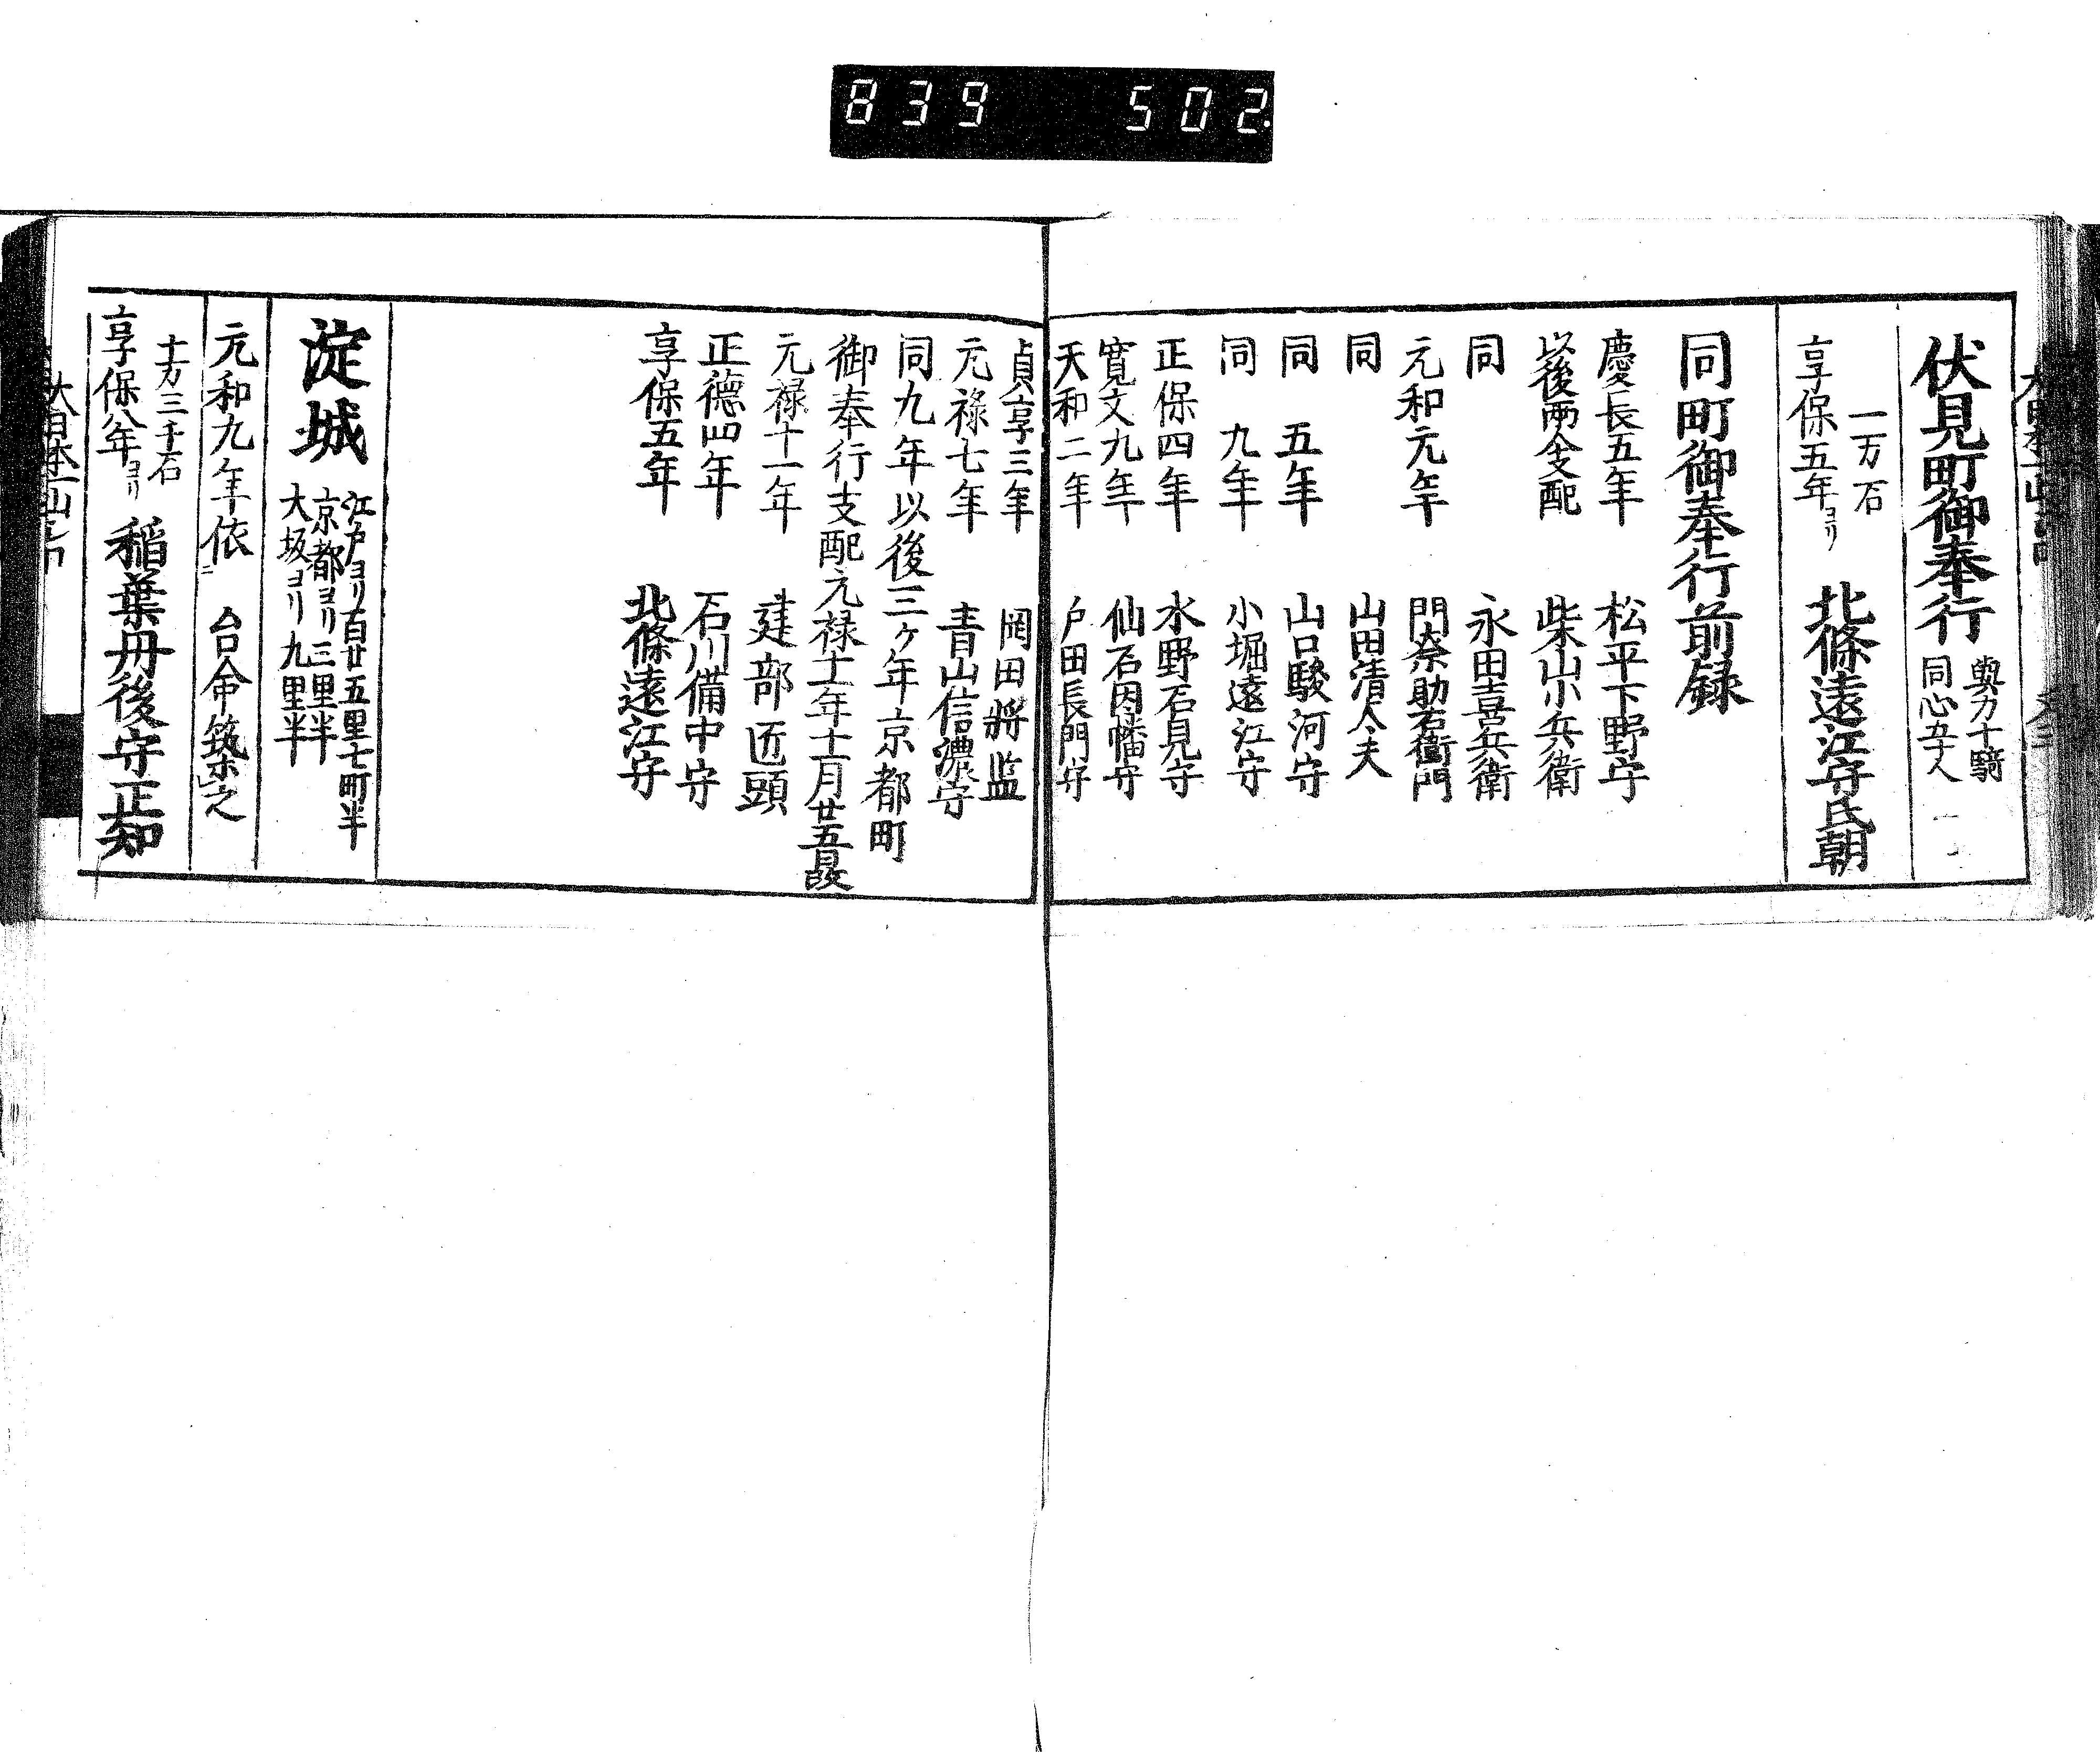 839 502
伏見町御奉行 與力十騎
同心五十人
一万石
享保五年ヨリ 北條遠江守氏朝
同町御奉行前録
慶長五年 松平下野守
以後両人支配 柴山小兵衛
同 永田喜兵衛
元和元年 門奈助右衛門
同 山田清太夫
同 五年 山口駿河守
同 九年 小堀遠江守
正保四年 水野石見守
寛文九年 仙石因幡守
天和二年 戸田長門守
貞享三年 岡田將監
元禄七年 青山信濃守
同九年以後三ケ年京都町
御奉行支配元禄十一年十一月廿五日改
元禄十一年 建部匠頭
正徳四年 石川備中守
享保五年 北條遠江守
淀城 江戸ヨリ百廿五里七町半
京都ヨリ三里半
大坂ヨリ九里半
元和九年依ニ 台命築之
十万三千石
享保八年ヨリ 稲葉丹後守正知